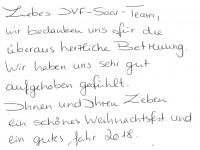 Liebes JVF-Saar-Team,
wir bedanken uns für die
überaus herzliche Betreuung.
Wir haben uns sehr gut
aufgehoben gefühlt.
Ihnen und Ihren Lieben
ein schönes Weihnachtsfest und
ein gutes Jahr 2018.